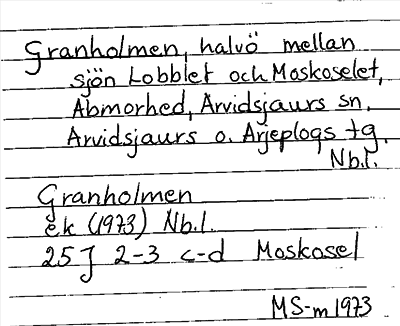 Granholmen, halvö mellan
sjön Lobblet och Moskoselet,
Abmorhed, Arvidsjaurs sn.
Arvidsjaurs o. Arjeplogs tg.
Nb.l.
Granholmen
ek (1973) Nb.l.
25 J 2-3 c-d Moskosel
MS-m 1973